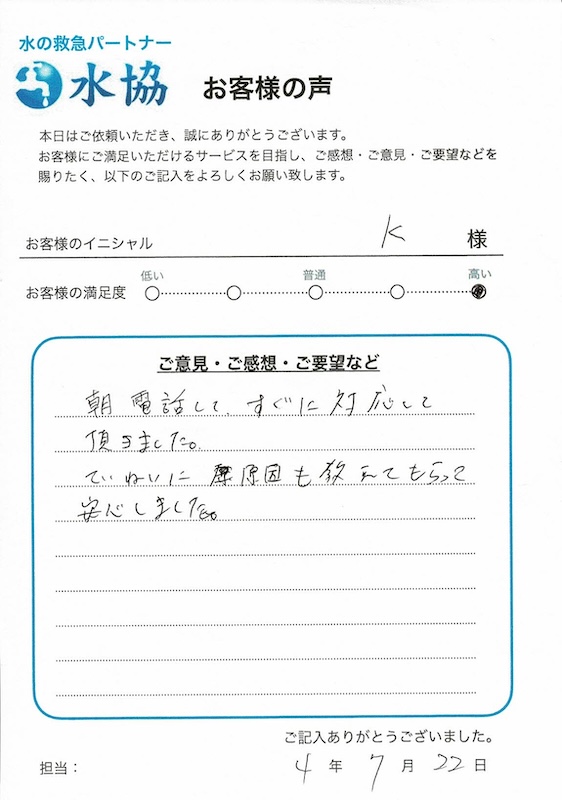 水の救急パートナー
水協 お客様の声
本日はご依頼いただき、誠にありがとうございます。
お客様にご満足いただけるサービスを目指し、ご感想・ご意見・ご要望などを
賜りたく、以下のご記入をよろしくお願い致します。
お客様のイニシャル K 様
低い 普通 高い
お客様の満足度
ご意見・ご感想・ご要望など
朝電話して、すぐに対応して
頂きました。
ていねいに 原因も教えてもらって
安心しました。
ご記入ありがとうございました。
担当： 4 年 7 月 22 日